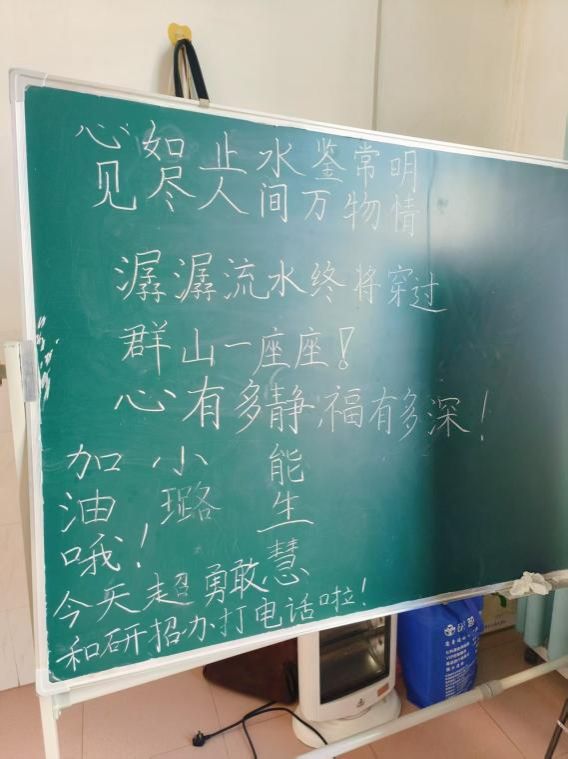 心如止水鉴常明
见尽人间万物情
潺潺流水终将穿过
群山一座座!
心有多静,福有多深!
加油哦!
小璐
能生慧
今天超勇敢
和研招办打电话啦!